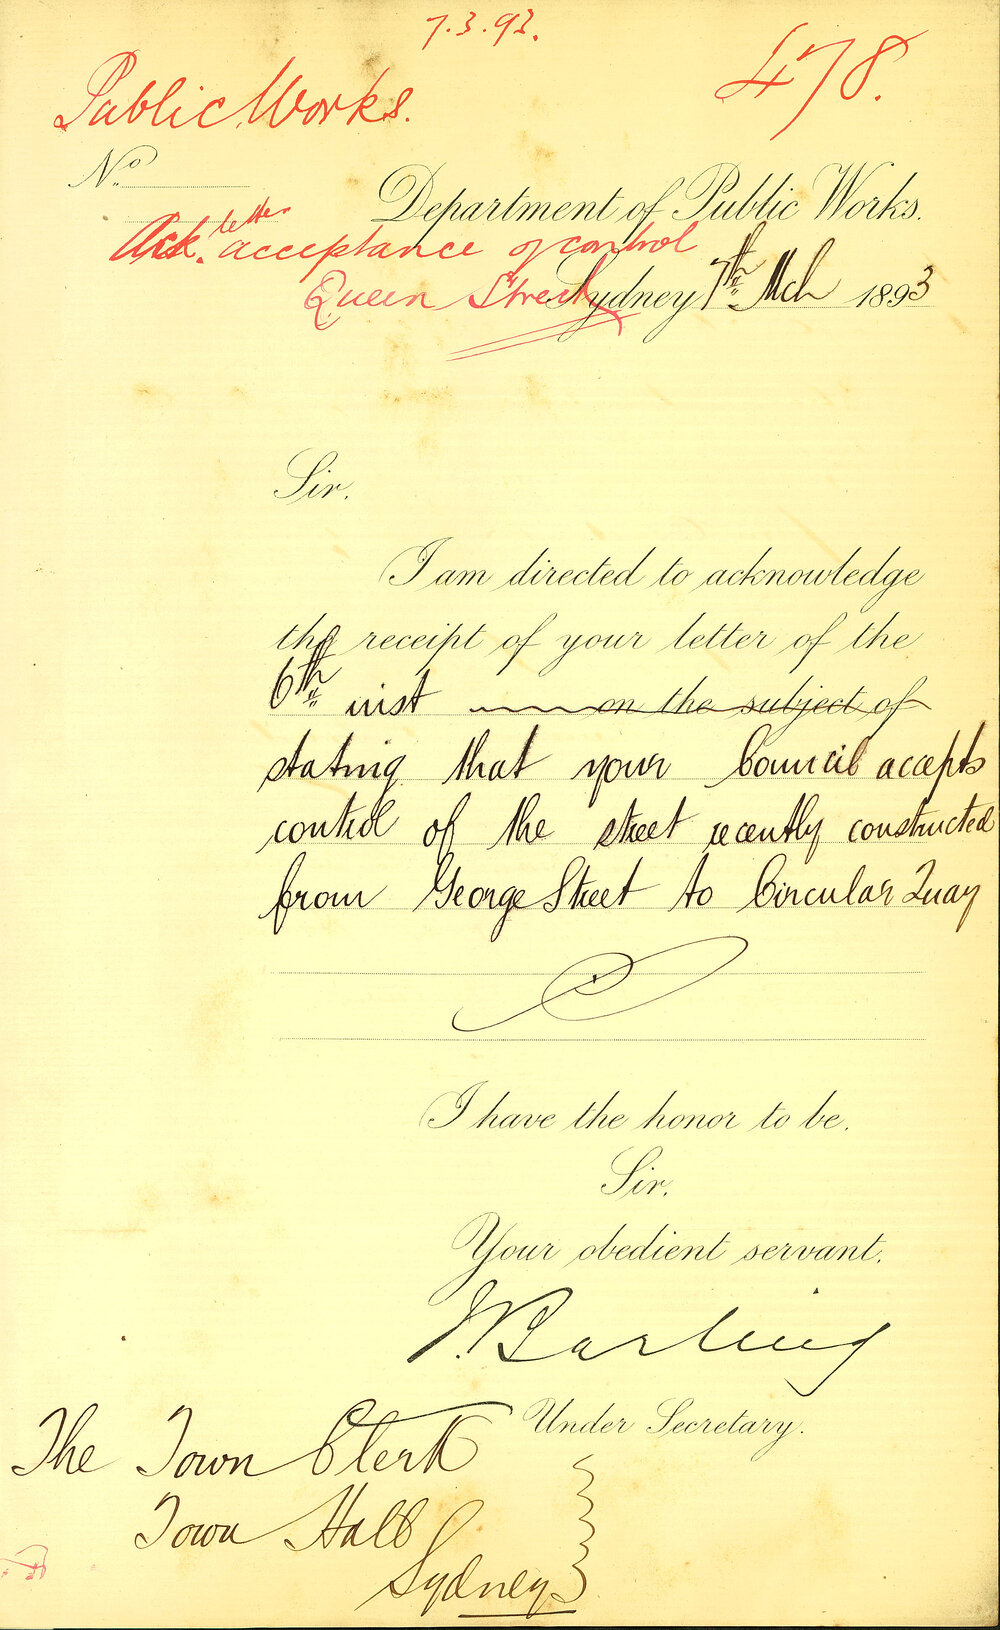 7.3.93.
478.
Public Works.
No.
Department of Public Works.
Ack. letter acceptance of control
Queen Street
Sydney 7th Mch 1893
Sir.
I am directed to acknowledge
the receipt of your letter of the
6th inst on the subject of
stating that your Council accepts
control of the street recently constructed
from George Street to Circular Quay
I have the honor to be.
Sir.
Your obedient servant.
J. Barling
Under Secretary.
The Town Clerk
Town Hall
Sydney